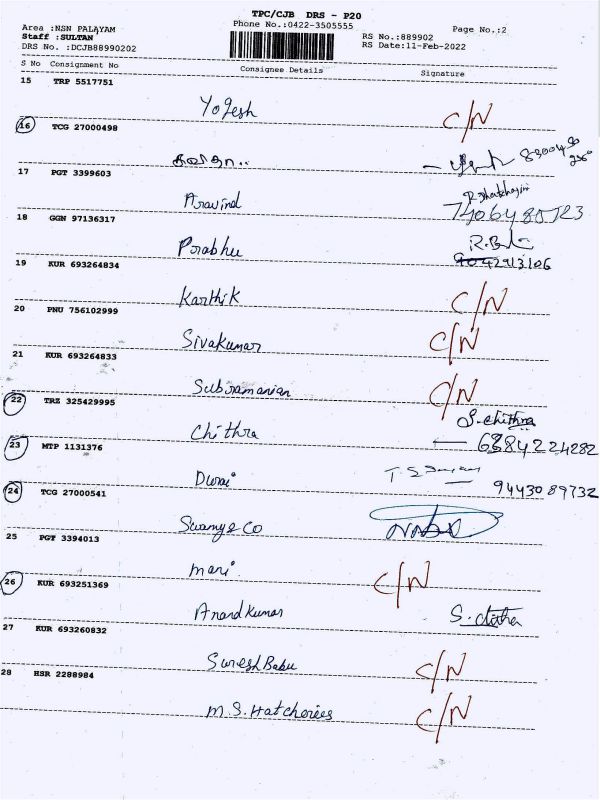 TPC/CJB DRS - P20
Area :NSN PALAYAM
Phone No.:0422-3505555
Page No.:2
Staff :SULTAN
RS No.:889902
DRS No. :DCJB88990202
RS Date:11-Feb-2022
S No Consignment No Consignee Details Signature
15 TRP 5517751
Yogesh C/N
16 TCG 27000498
17 PGT 3399603
Aravind 7406480723
18 GGN 97136317
Prabhu
9042913106
19 KUR 693264834
Karthik C/N
20 PNU 756102999
Sivakumar C/N
21 KUR 693264833
Subramanian C/N
22 TRZ 325429995
Chithra S.chithra
6384224282
23 MTP 1131376
Durai
9443089732
24 TCG 27000541
Swamy & Co
25 PGT 3394013
mari C/N
26 KUR 693251369
Anandkumar
27 KUR 693260832
SureshBabu C/N
28 HSR 2288984
M.S.Hatcheries C/N